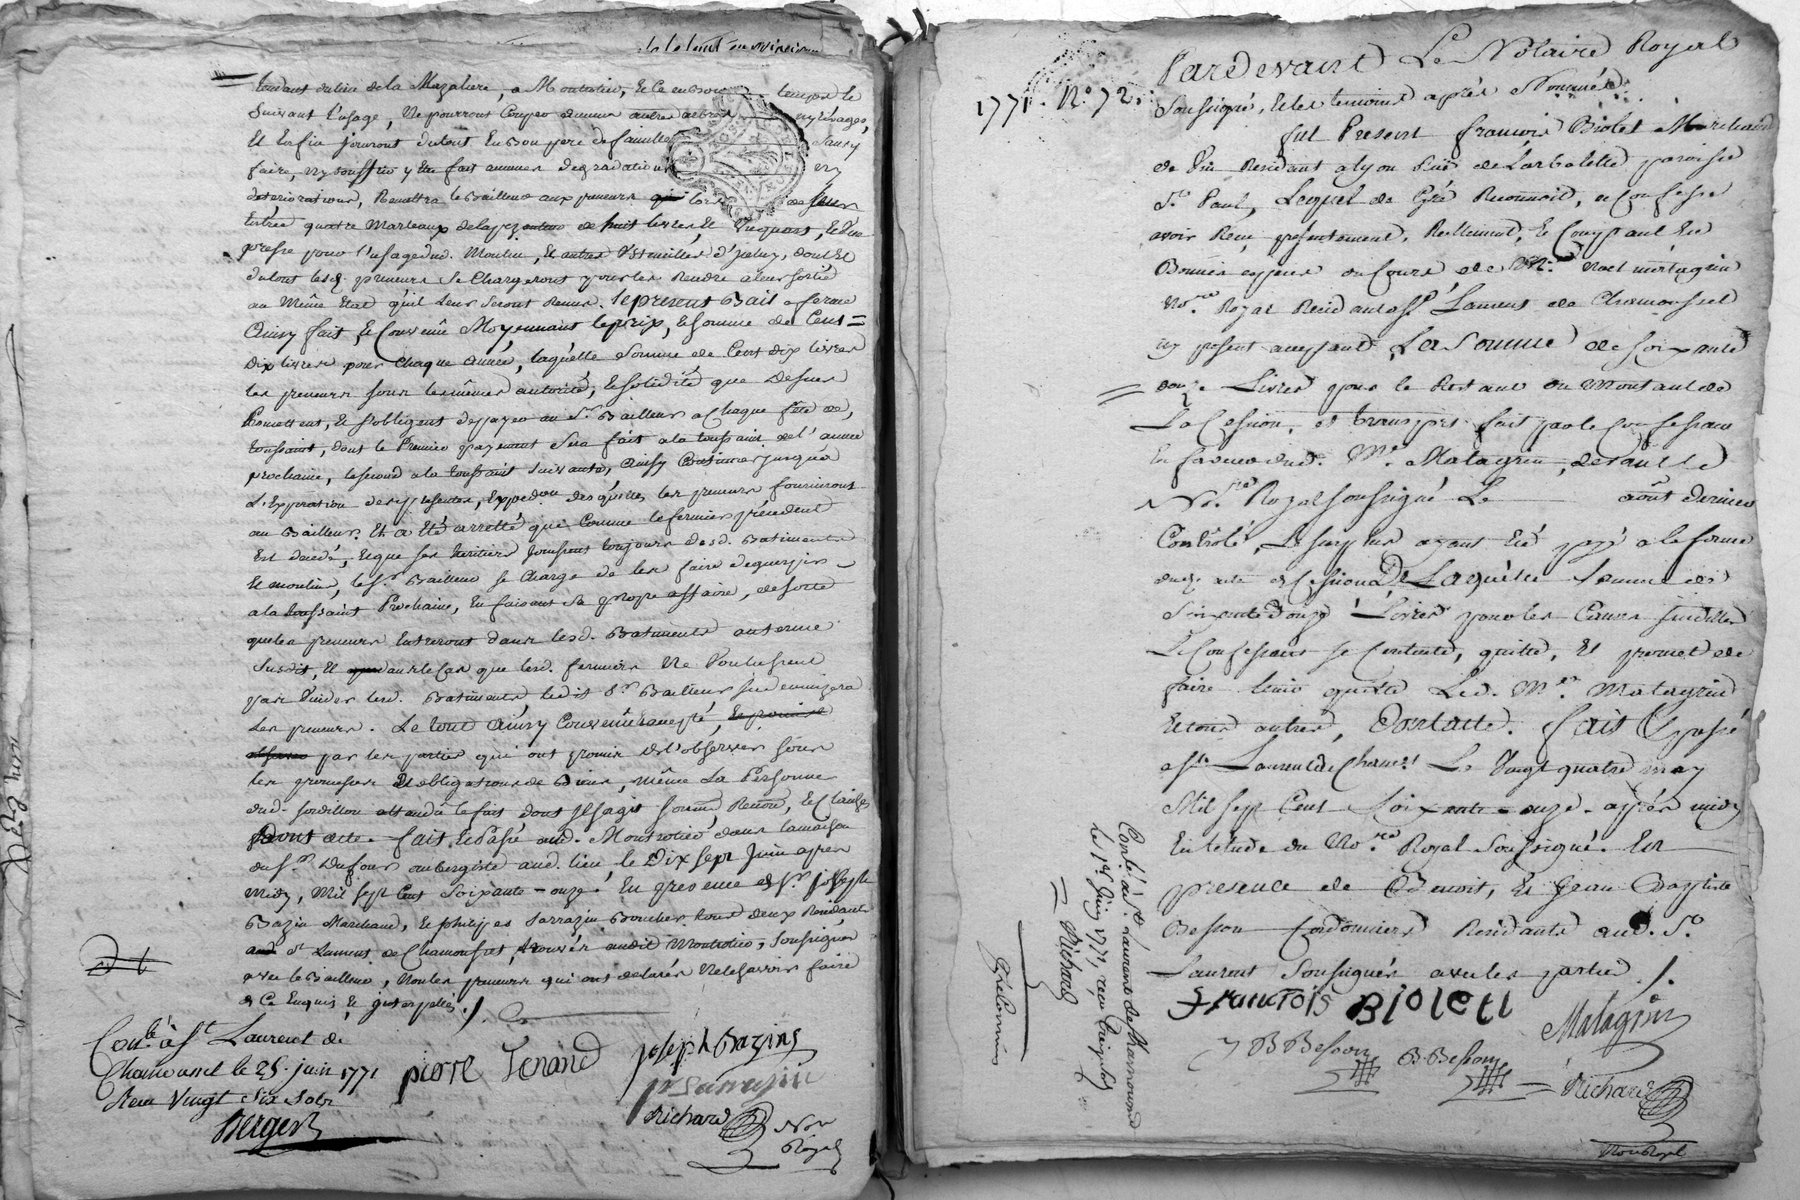 tenant du lieu de la Mazaliere, a Montrotier, Et Ce en bon temps le
Suivant l'usage, Ne pourront Couper aucuns autres arbres ny lévages,
Et Enfin Jouiront dutout En Bon pere de famille Sans y
faire, ny souffrir y Etre fait aucunes degradations ny
deteriorations, Remettra le Bailleur aux preneurs
Entrée quatre Marteaux de huit Livres Et
presse pour l'usage dud. Moulin, Et autres Ustenciles d'jceluy, dont Et
dutout lesd. preneurs Se Chargeront pour les Rendre a leur Sortie
au Même Etat qu'il Leur Seront Remis. le present Bail a ferme
Ainsy fait, Et Convenû Moyennant le prix, Et Somme de Cent =
Dix livres pour Chaque Année, laquelle Somme de Cent dix livres
les preneurs sous les mêmes autorité, Et Solidité que Dessus
Promettent, Et S'obligent de payer au Sr. Bailleur a Chaque fête de,
toussaint, dont le Premier payement Sera fait a la toussaint de l'année
prochaine, le second a la toussaint Suivante, Ainsy Continuer jusqu'a
L'Expiration des presentes, Expedon desquelles les preneurs fourniront
au Bailleur. Et a Eté arretté que Comme le fermier précédent
Est decedé, Et que ses heritiers Jouissent toujours desd. Batiments
Et moulin, le Sr. Bailleur se Charge de les faire deguerpir
a la toussaint Prochaine, En faisant Sa propre affaire, de sorte
que les preneurs Entreront dans lesd. Batiments au terme
Susdit, Et dans le Cas que lesd. fermiers Ne Voulussent
pas Vuider lesd. Batiments ledit Sr. Bailleur jndemnizera
Les preneurs. Le tout Ainsy Convenû Et accepté,
par les parties qui ont promis de l'observer sous
les promesses Et obligations de Biens, même La Personne
dud. attendû le fait dont Il s'agit Soum, Renon, Et Clauses
Dont acte. fait Et Passé aud. Montrotier dans la maison
du Sr. Dufour aubergiste aud. lieu, le Dix sept Juin apres
midy, Mil Sept Cent Soixante-onze. En presence de Sr. Joseph
Bazin Marchand, Et philippe Sarrazin Boucher tous deux Residants
a St Laurent de Chamousset, trouvés audit Montrotier, Soussignés
avec le Bailleur, Non les preneurs qui ont declarés Ne le Savoir faire
de Ce Enquis Et jnterpellés ./.
Conlé à St Laurent de
Chamousset le 25. juin 1771
Reçu Vingt Six Sols
Berger
pierre Tenand
joseph Bazin
p Sarrazin
Richard
Nore
Royal
1771. No. 72.
Pardevant Le Notaire Royal
Soussigné, Et les temoins après Nommés
fut Present françois Biolet Marchand
de Vin Residant a lyon Ruë de Larbalette paroisse
St. Paul, Lequel de Gré Reconnoit, et Confesse
avoir Reçu présentement, Réellement, Et Comptant En
Bonnes especes du Cours de Me. Noel matagrin
Nore. Royal Residant a St. Laurent de Chamousset
icy present acceptant La Somme de Soixante
douze Livres pour le Restant du Montant de
La Cession, et transport fait par le Confessant
En faveur dud. Me. Matagrin, devant le
Nore. Royal soussigné Le août dernier
Controlé, Le Surplus ayant Eté payé a la forme
dud. acte de Cession De Laquelle Somme de
Soixante Douze Livres pour les Causes Susdittes
Le Confessant se Contente, quitte, Et promet de
faire tenir quitte Led. Me. Matagrin
Et tous autres, Dont acte. fait Et passé
a St. Laurent de Chamt. Le Vingt quatre may
Mil Sept Cent Soixante-onze. après midy
En Letude du Nore. Royal Soussigné. En
presence de Benoit, Et Jean Baptiste
Besson Cordonniers Residants aud. St.
Laurent Soussignés avec les parties ./.
francois BIOLETt
Matagrin
J B Besson
B. Besson
Richard
Nore Royal
Conlé. à St. Laurent de Chamousset
le 1er Juin 1771, reçu
Richard